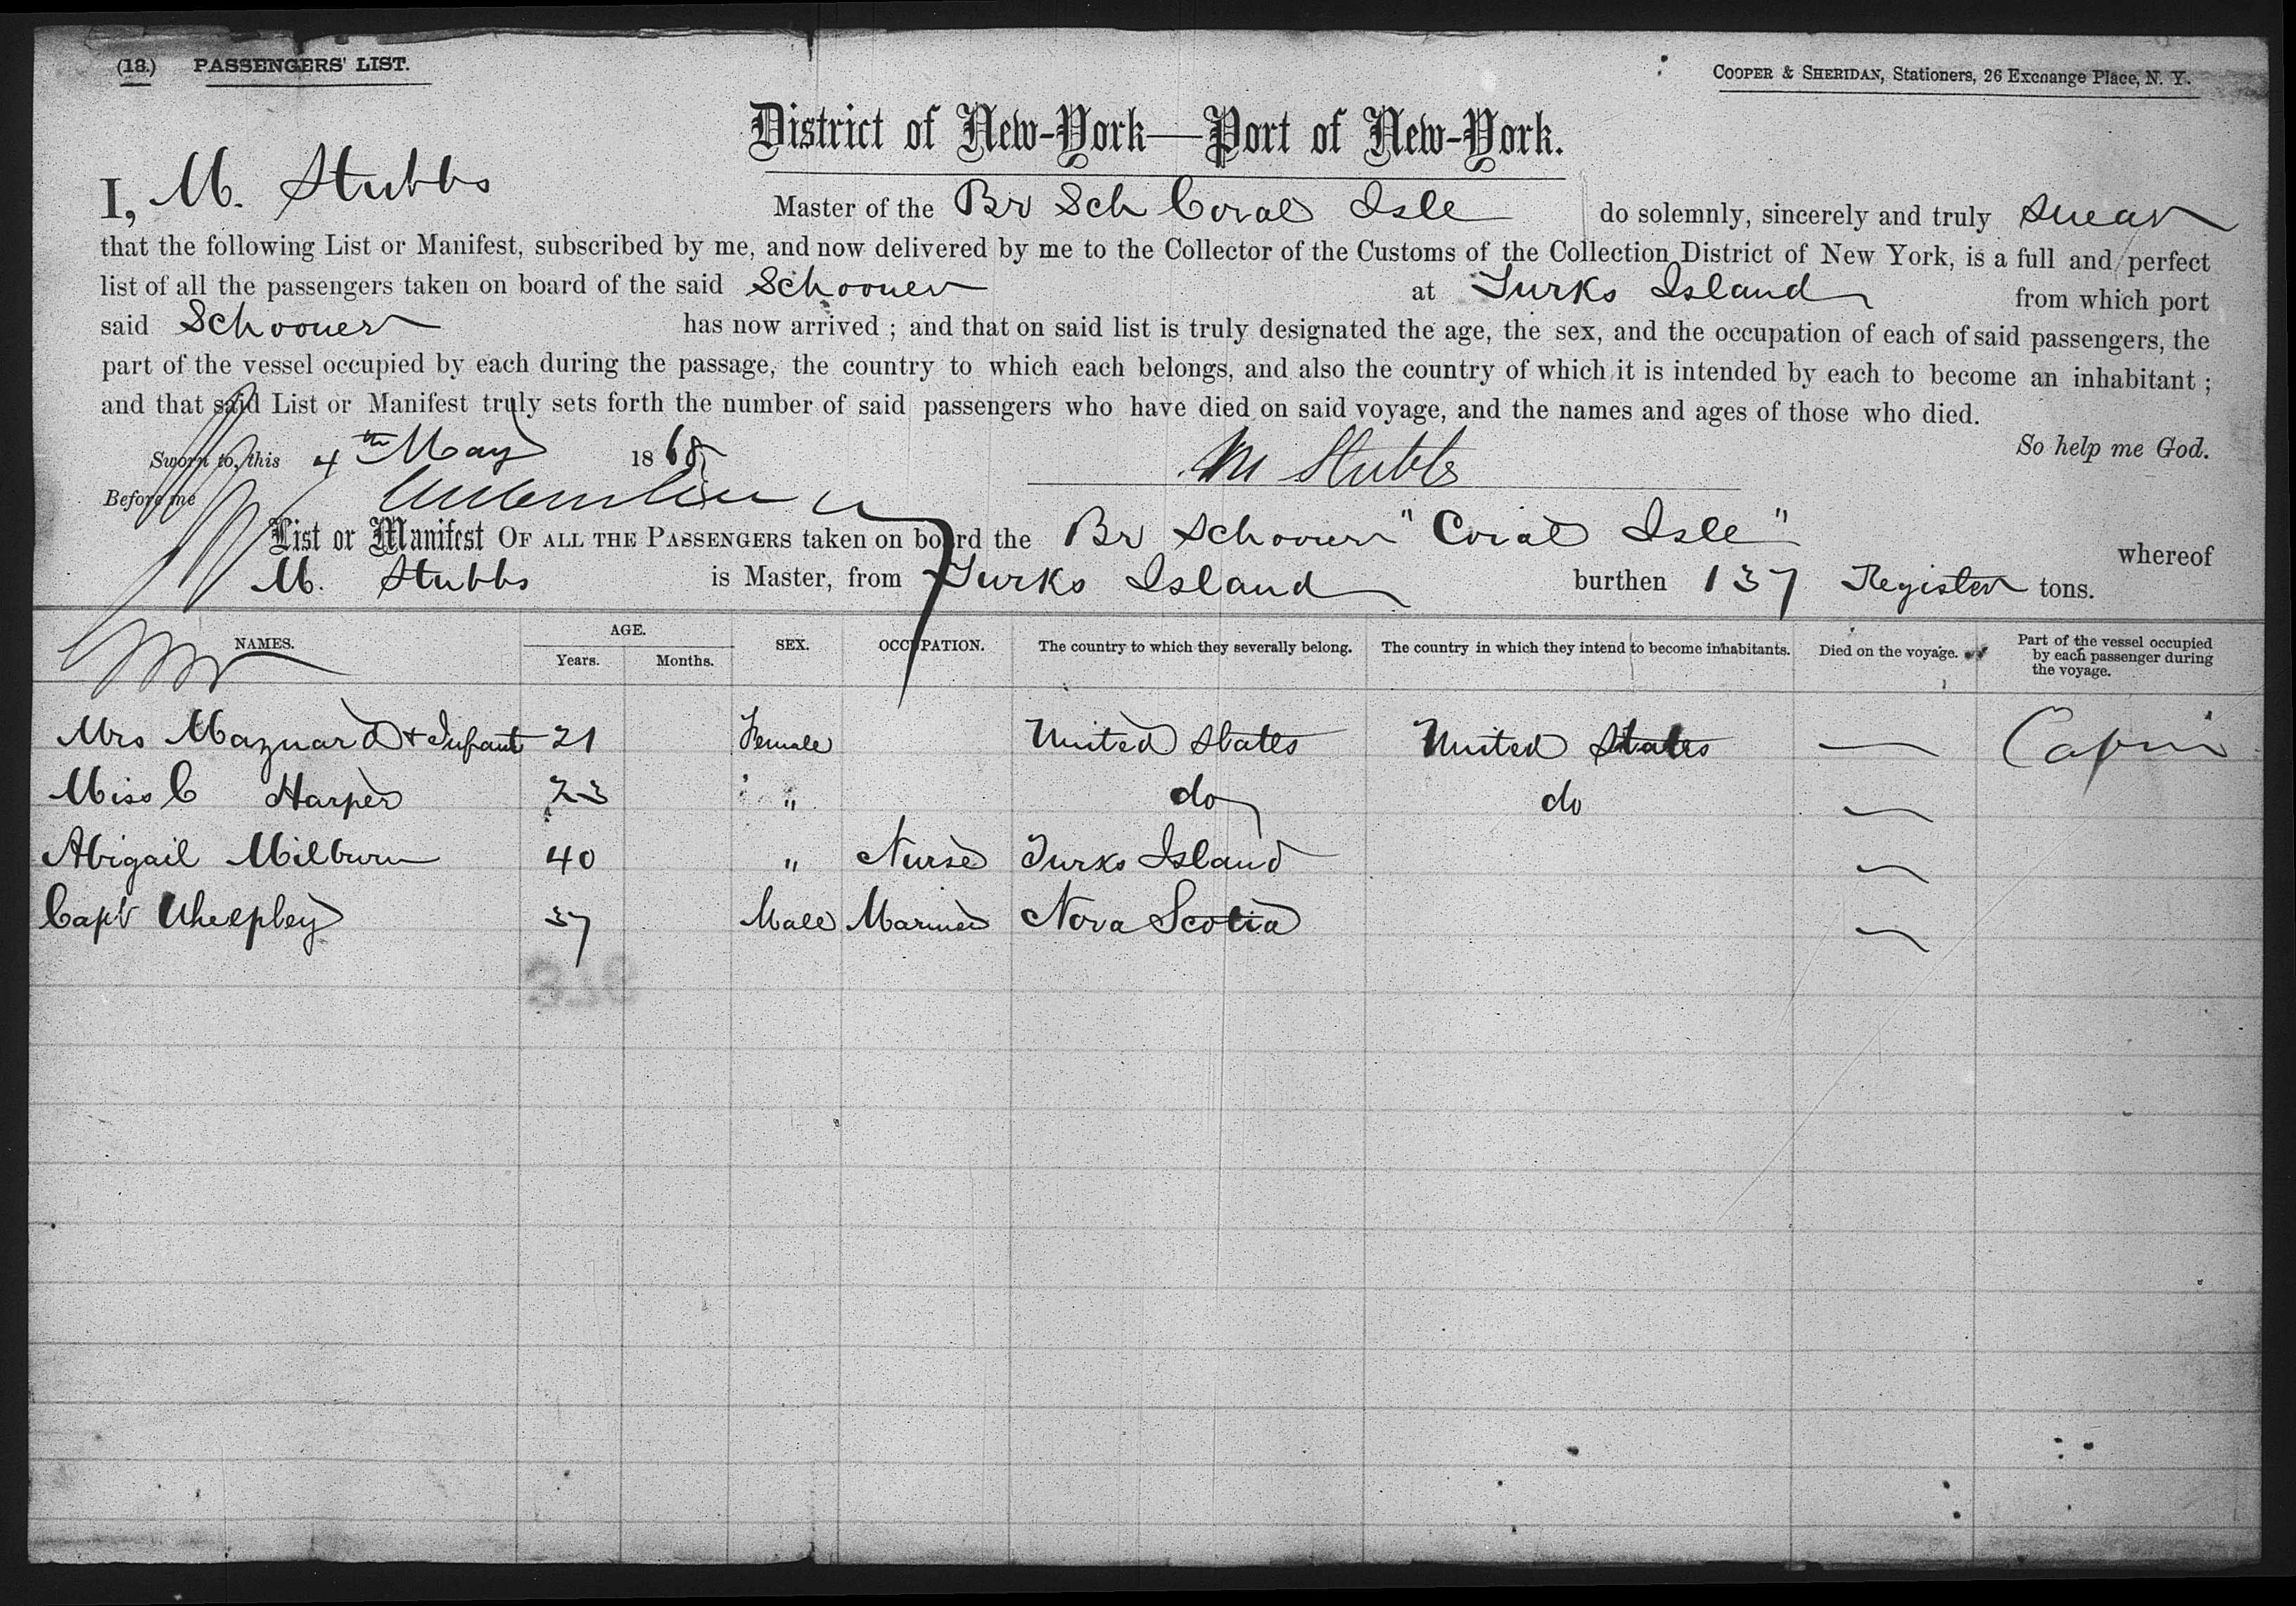 (18.) PASSENGERS' LIST.
COOPER & SHERIDAN, Stationers, 26 Exchange Place, N. Y.
District of New-York—Port of New-York.
I, M. Stubbs Master of the Br Sch Coral Isle do solemnly, sincerely and truly swear
that the following List or Manifest, subscribed by me, and now delivered by me to the Collector of the Customs of the Collection District of New York, is a full and perfect
list of all the passengers taken on board of the said Schooner at Turks Island from which port
said Schooner has now arrived ; and that on said list is truly designated the age, the sex, and the occupation of each of said passengers, the
part of the vessel occupied by each during the passage, the country to which each belongs, and also the country of which it is intended by each to become an inhabitant ;
and that said List or Manifest truly sets forth the number of said passengers who have died on said voyage, and the names and ages of those who died.
So help me God.
Sworn to, this 4th May 1868
M Stubbs
Before me
List or Manifest OF ALL THE PASSENGERS taken on board the Br Schooner "Coral Isle" whereof
M. Stubbs is Master, from Turks Island burthen 137 Register tons.
NAMES. AGE. Years. Months. SEX. OCCUPATION. The country to which they severally belong. The country in which they intend to become inhabitants. Died on the voyage. Part of the vessel occupied by each passenger during the voyage.
Mrs Maznard + Infant 21 Female United States United States — Cabin
Miss C Harper 23 " do do —
Abigail Milburn 40 " Nurse Turks Island —
Capt Whelpley 37 Male Mariner Nova Scotia —